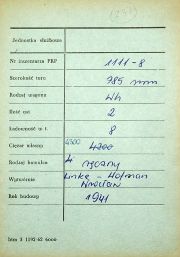 Jednostka służbowa
Nr inwentarza PKP 1111-8
Szerokość toru 785 mm
Rodzaj wagonu Wh
Ilość osi 2
Ładowność w t. 8
Ciężar własny 4300 4200
Rodzaj hamulca ręczny
Wytwórnia Linke-Hofman
Wrocław
Rok budowy 1941